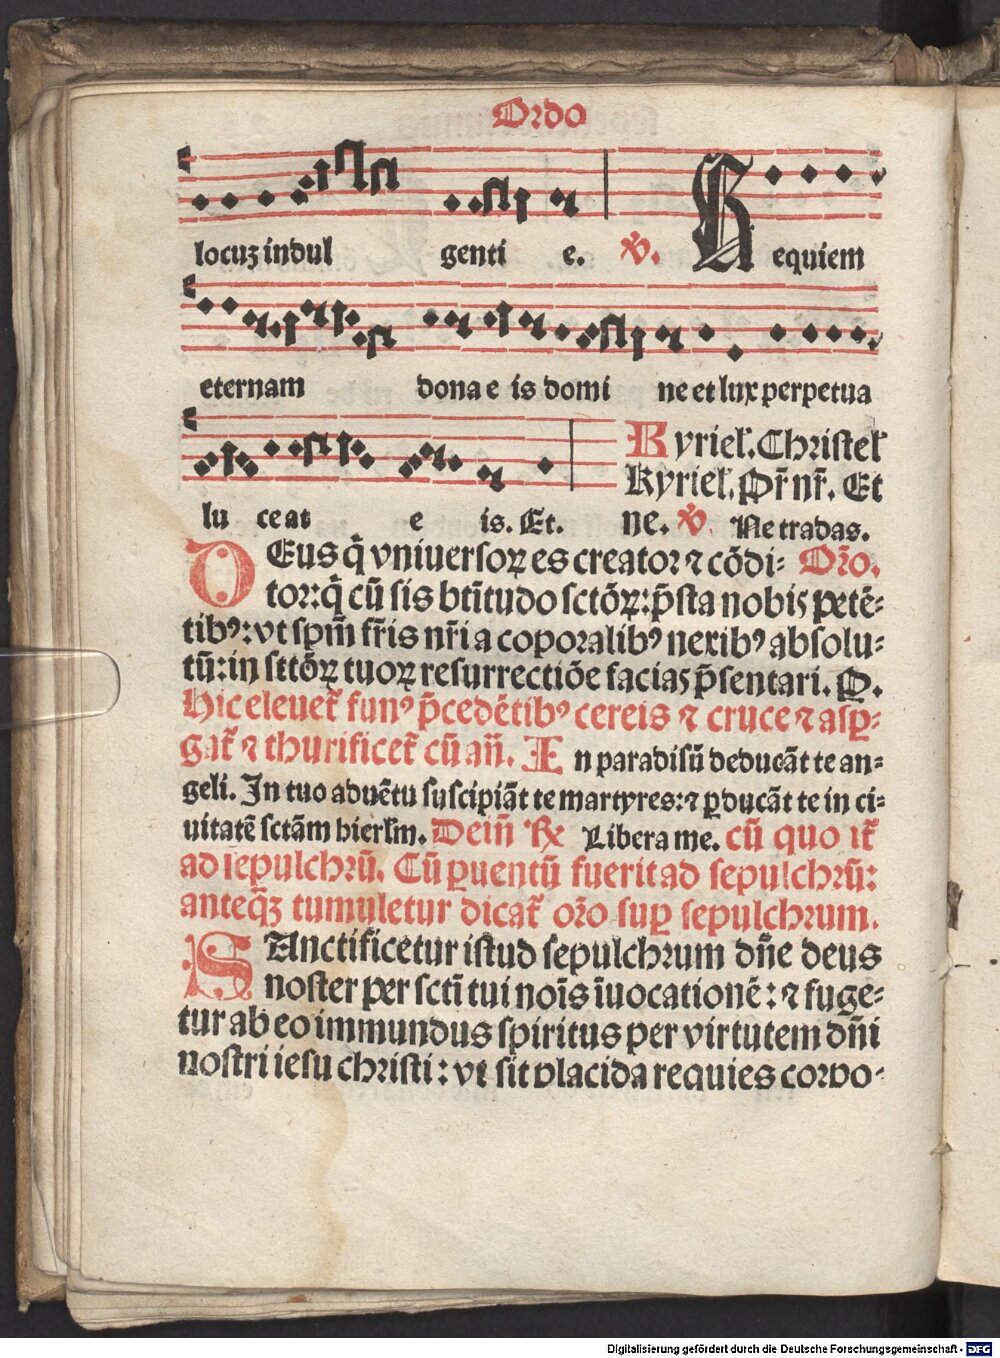 Ordo
locuꝫ indul genti e. ℣. Requiem
eternam dona e is domi ne et lux perpetua
Kyriel̄. Christel̄
Kyriel̄. Pr̄ nr̄. Et
lu ce at e is. Et. ne. ℣. Ne tradas.
DEus q̄ vniuersoꝝ es creator ⁊ cōdi- Or̄o.
tor: q̄ cū sis btītudo sctōꝝ: p̄sta nobis petē-
tibꝰ: vt spm̄ fr̄is nr̄i a coporalibꝰ nexibꝰ absolu-
tū: in sctōꝝ tuoꝝ resurrectiōe facias p̄sentari. P.
Hic eleuet̄ funꝰ p̄cedētibꝰ cereis ⁊ cruce ⁊ asꝑ-
gat̄ ⁊ thurificet̄ cū an̄. In paradisū deducāt te an-
geli. In tuo aduētu suscipiāt te martyres: ⁊ ꝑducāt te in ci-
uitatē sctām hierlm̄. Dein̄ ℟ Libera me. cū quo it̄
ad sepulchrū. Cū ꝑuentū fuerit ad sepulchrū:
anteqꝫ tumuletur dicat̄ or̄o suꝑ sepulchrum.
SAnctificetur istud sepulchrum dn̄e deus
noster per scti tui nois īuocationē: ⁊ fuge-
tur ab eo immundus spiritus per virtutem dn̄i
nostri iesu christi: vt sit placida requies corpo-
Digitalisierung gefördert durch die Deutsche Forschungsgemeinschaft - DFG